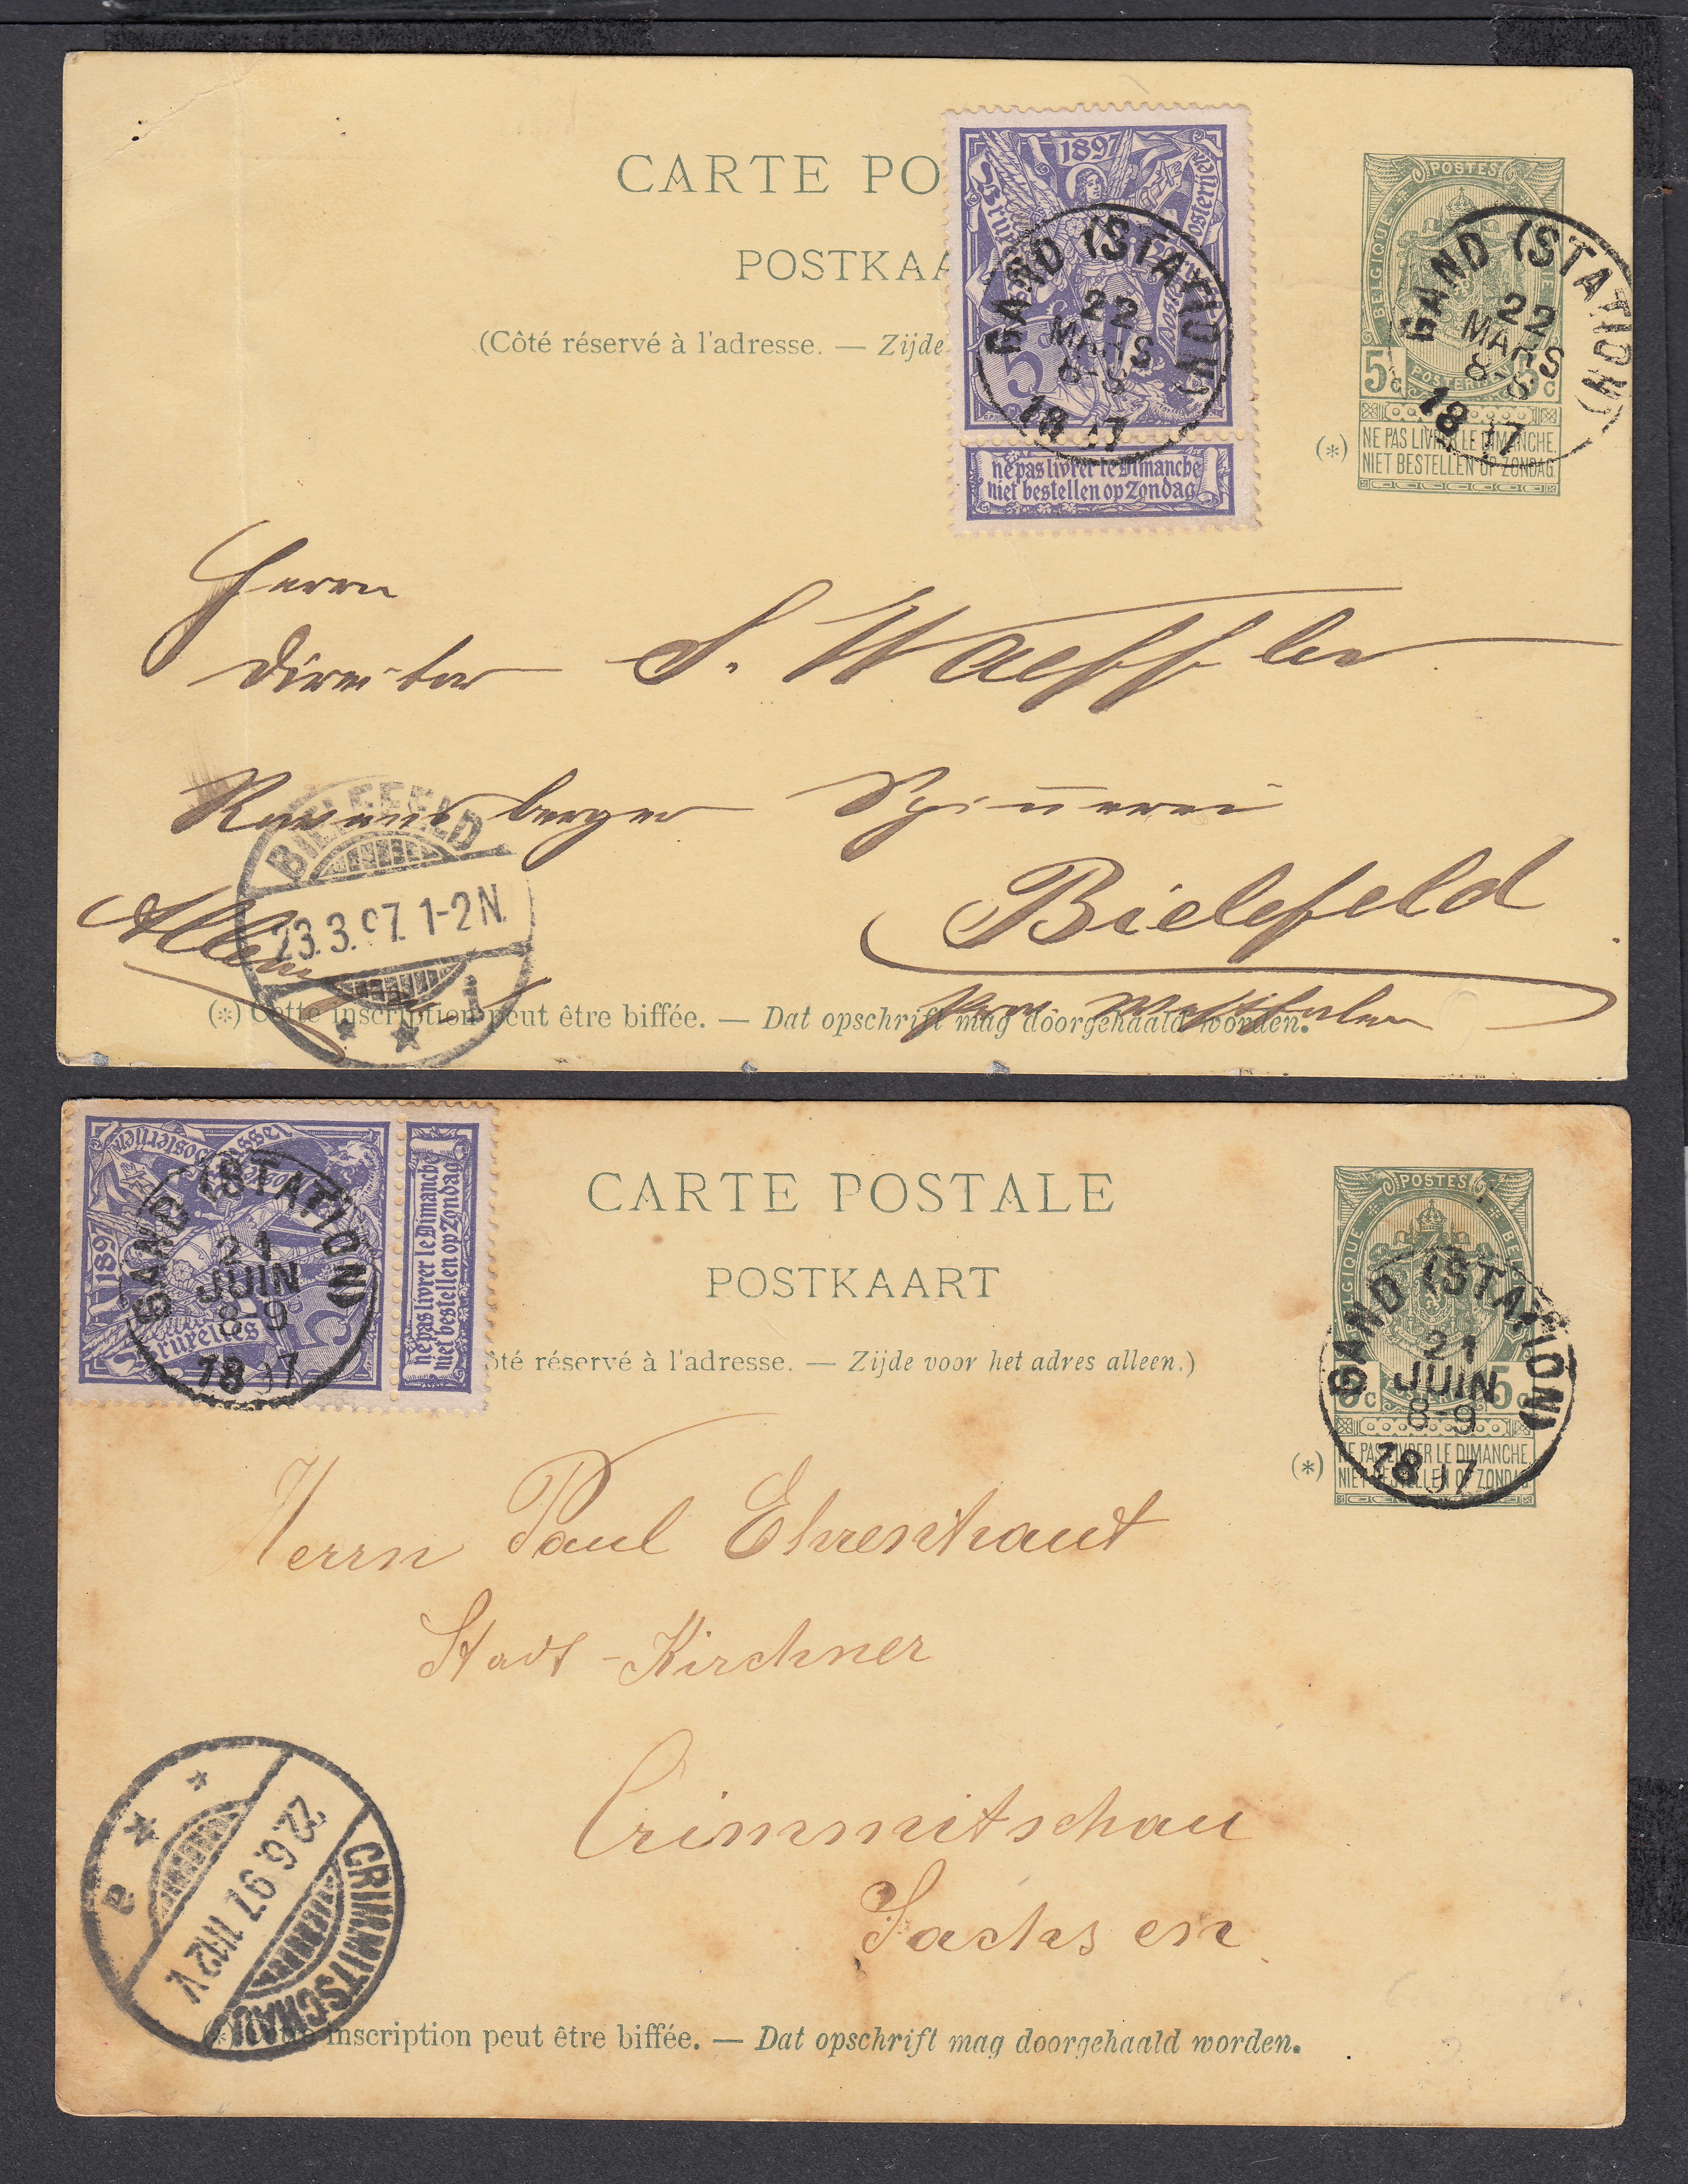 CARTE PO
POSTKAA
(Côté réservé à l'adresse. — Zijde
1897
5
GAND (STATION)
22
MARS
8-9
1897
ne pas livrer le Dimanche
niet bestellen op Zondag
POSTES
BELGIQUE
POSTERIJEN
5c
GAND (STATION)
22
MARS
1897
(*)
NE PAS LIVRER LE DIMANCHE.
NIET BESTELLEN OP ZONDAG
Herrn
Director S. Waeffler
Ravensberger Spinnerei
Bielefeld
Allem
Westfalen
BIELEFELD
23.3.97. 1-2N.
1
(*) Cette inscription peut être biffée. — Dat opschrift mag doorgehaald worden.
1897
Bruxelles
5
GAND (STATION)
21
JUIN
8-9
1897
ne pas livrer le Dimanche
niet bestellen op Zondag
CARTE POSTALE
POSTKAART
ôté réservé à l'adresse. — Zijde voor het adres alleen.)
POSTES
BELGIQUE
5c
GAND (STATION)
21
JUIN
8-9
1897
(*)
NE PAS LIVRER LE DIMANCHE.
NIET BESTELLEN OP ZONDAG
Herrn Paul Ehrenhaut
Stadt-Kirchner
Crimmitschau
Sachsen
CRIMMITSCHAU
22.6.97 11-12V.
a
inscription peut être biffée. — Dat opschrift mag doorgehaald worden.